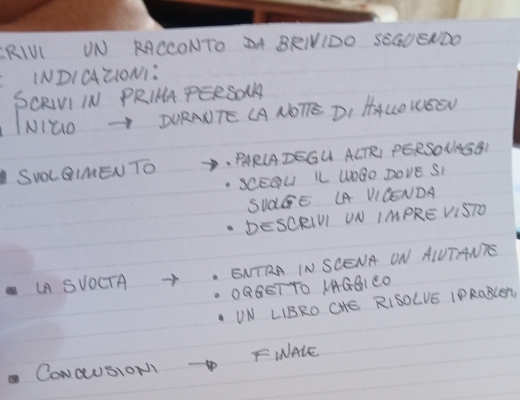 CRIVI UN RACCONTO DA BRIVIDO SEGUENDO
E INDICAZIONI:
SCRIVI IN PRIMA PERSONA
INIZIO → DURANTE LA NOTTE DI HALLOWEEN
▪ SVOLGIMENTO → • PARLA DEGLI ALTRI PERSONAGGI
• SCEGLI IL LUOGO DOVE SI
SVOLGE LA VICENDA
• DESCRIVI UN IMPREVISTO
▪ LA SVOLTA → • ENTRA IN SCENA UN AIUTANTE
• OGGETTO MAGGICO
• UN LIBRO CHE RISOLVE I PROBLEM
▪ CONCLUSIONI → FINALE